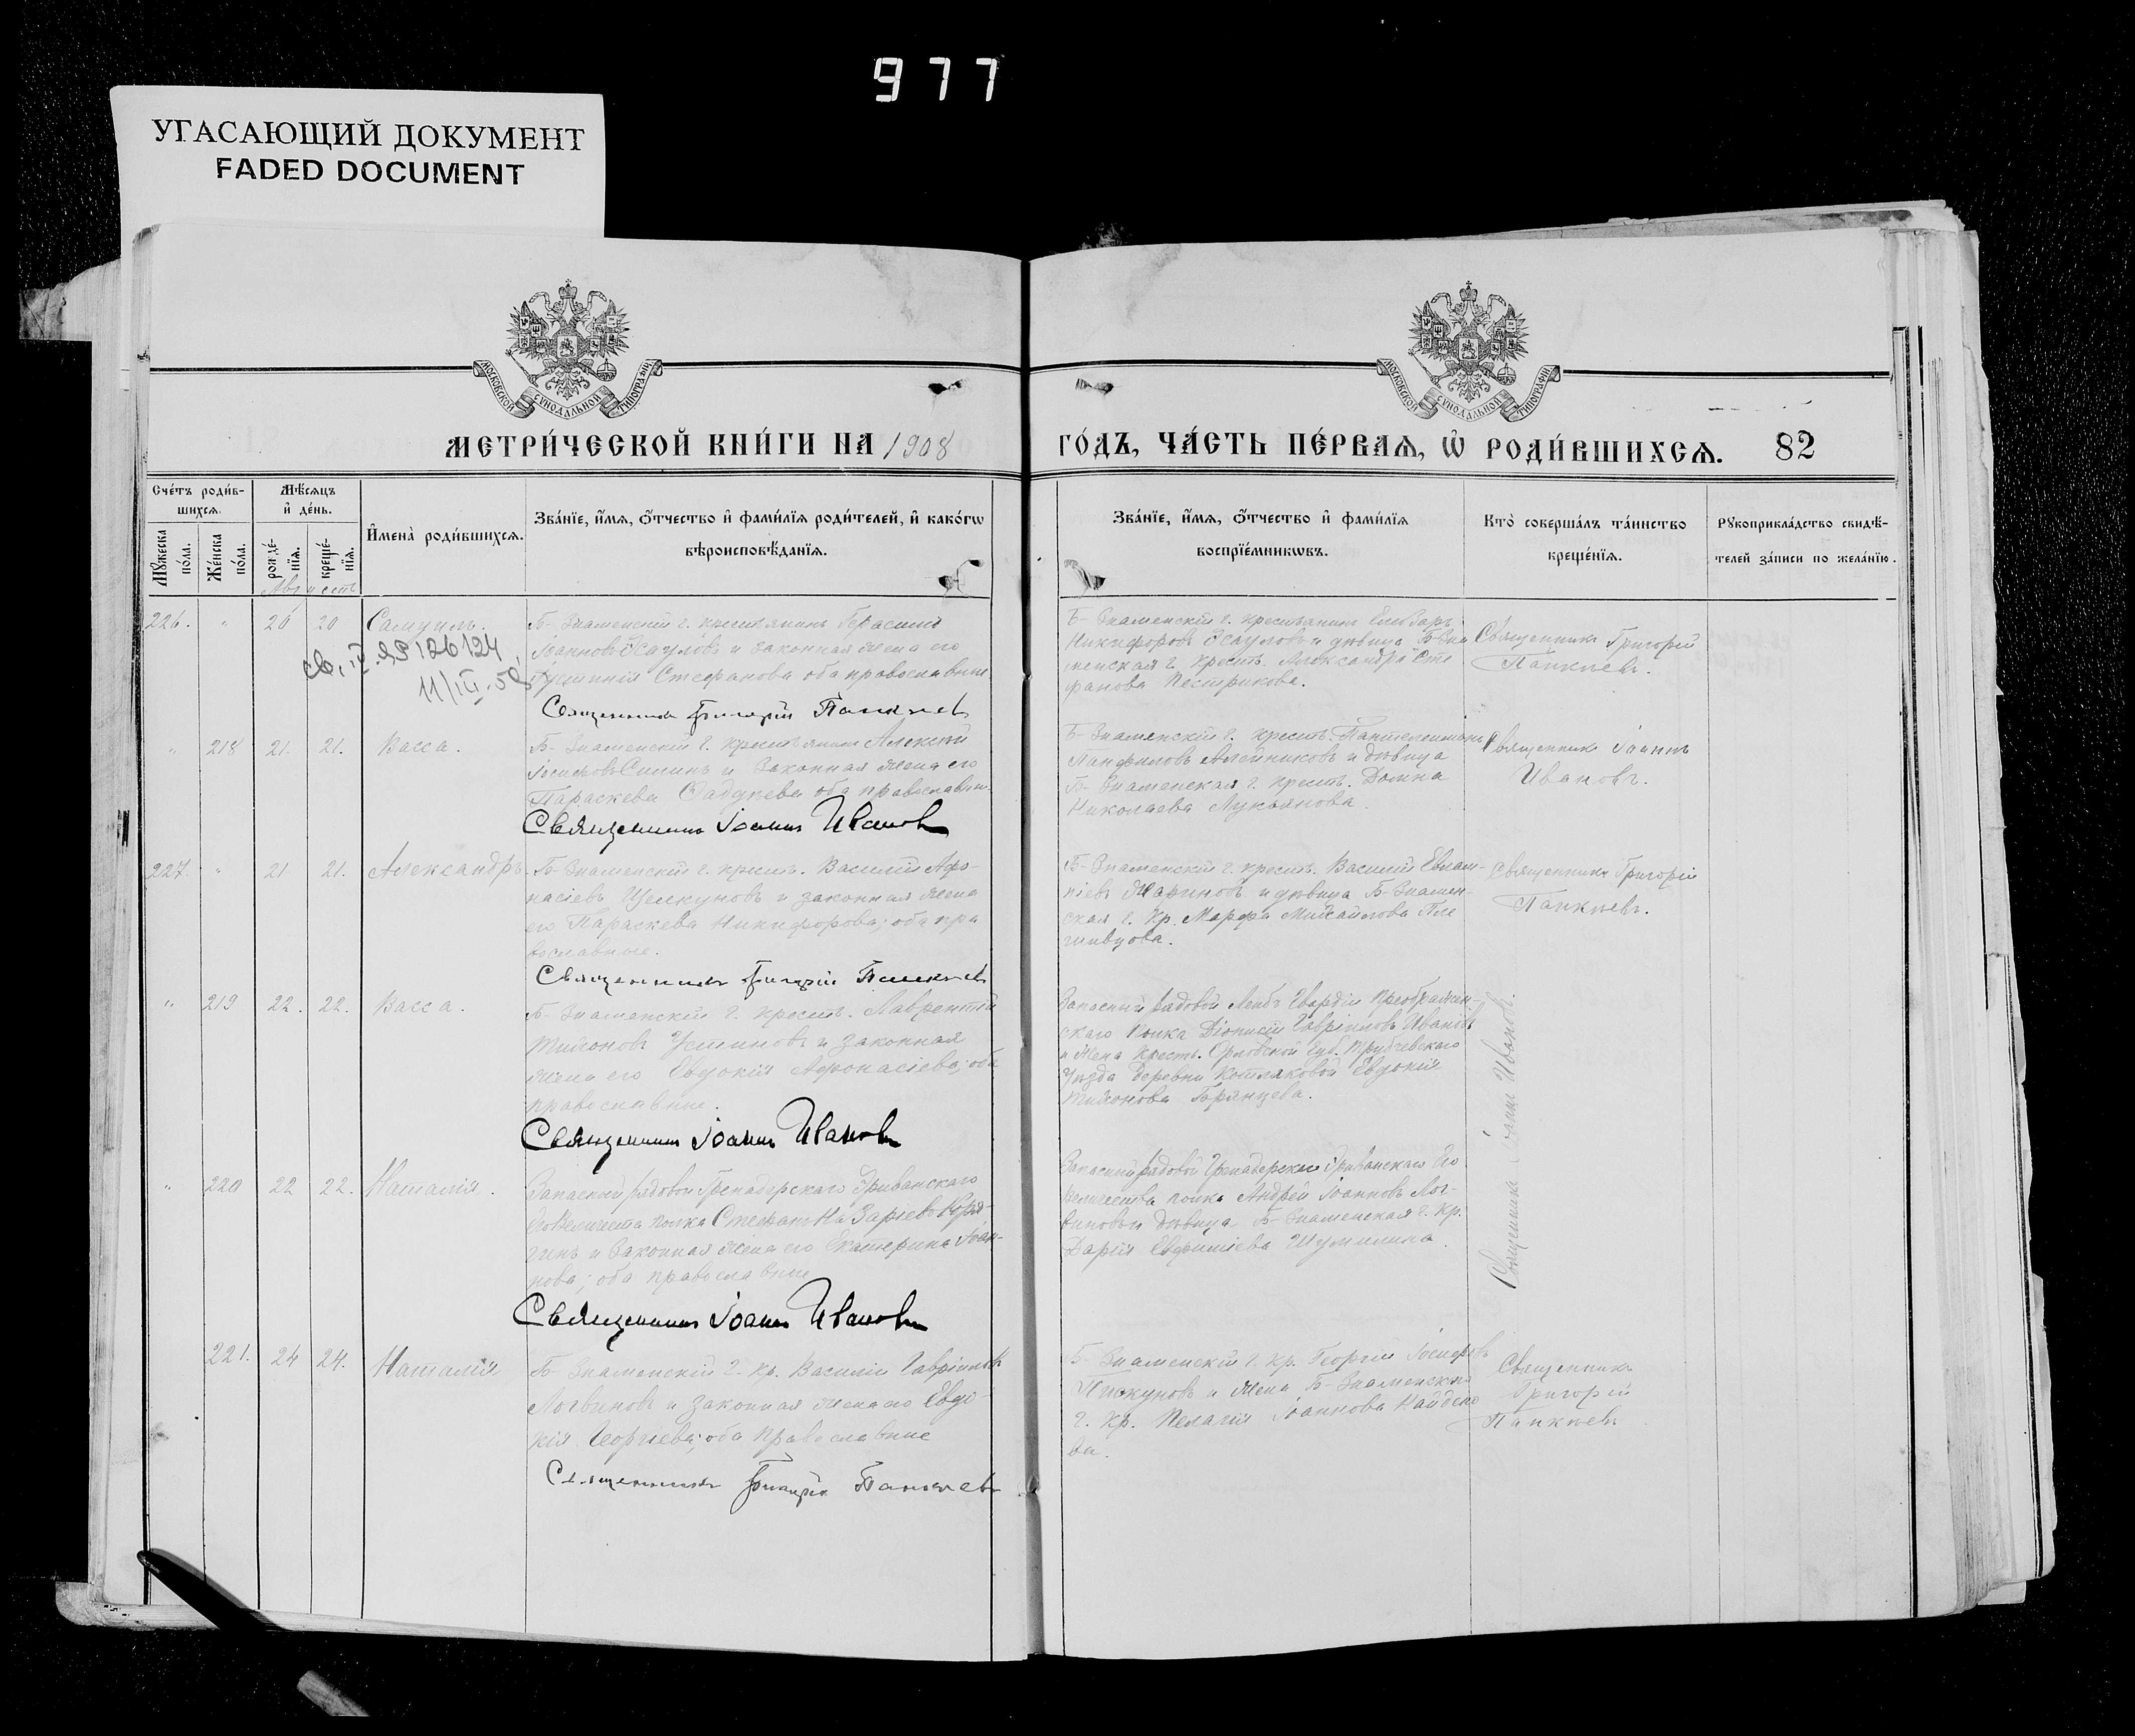 977
УГАСАЮЩИЙ ДОКУМЕНТ
FADED DOCUMENT
МОСКОВСКОЙ СѴНОДАЛЬНОЙ ТИПОГРАФІИ
МОСКОВСКОЙ СѴНОДАЛЬНОЙ ТИПОГРАФІИ
МЕТРИ́ЧЕСКОЙ КНИ́ГИ НА 1908
ГО́ДЪ, ЧА́СТЬ ПЕ́РВАѦ, Ѽ РОДИ́ВШИХСѦ. 82
Сче́тъ роди́в-
шихсѧ.
Мѣ́сѧцъ
и҆ де́нь.
Мꙋ́жеска по́ла.
Же́нска по́ла.
рожде́-нїѧ.
креще́-нїѧ.
И҆мена̀ роди́вшихсѧ.
Зва́нїе, и҆́мѧ, ѻ҆́тчество и҆ фами́лїѧ роди́телей, и҆ како́гѡ
вѣроисповѣ́данїѧ.
Зва́нїе, и҆́мѧ, ѻ҆́тчество и҆ фами́лїѧ
воспрїе́мникѡвъ.
Кто̀ соверша́лъ та́инство
креще́нїѧ.
Рꙋкоприкла́дство свидѣ́-
телей за́писи по жела́нїю.
Августъ
226. " 20 20 Самуилъ.
11/III.58
Б-Знаменскій г. крестьянинъ Герасимъ
Іоанновъ Есауловъ и законная жена его
Іустинія Стефанова оба православные
Священникъ Григорій
Б-Знаменскій г. крестьянинъ Елеазаръ
Никифоровъ Есауловъ и дѣвица Б-Зна
менская г. крест. Александра Сте
фанова Пестрикова.
Священникъ Григорій
" 218 21. 21. Васса.
Б-Знаменскій г. крестьянинъ Алексій
Іосифовъ Силинъ и законная жена его
Параскева Фадѣева оба православны.
Священникъ Іоаннъ Ивановъ
Б-Знаменскій г. крестъ. Пантелеимонъ
Панфиловъ Алейниковъ и дѣвица
Б-Знаменская г. крестъ. Домна
Николаева Лукьянова.
Священникъ Іоаннъ
Ивановъ.
227. " 21 21. Александръ.
Б-Знаменскій г. крестъ. Василій Афо-
насіевъ Щелкуновъ и законная жена
его Параскева Никифорова; оба пра
вославные.
Священникъ Григорій
Б-Знаменскій г. крестъ. Василій Евлам-
піевъ Жариновъ и дѣвица Б-Знамен-
ская г. кр. Марфа Михайлова Пле
шивцова.
Священникъ Григорій
" 219 22. 22. Васса.
Б-Знаменскій г. крестъ. Лаврентій
Тихоновъ Устиновъ и законная
жена его Евдокія Афонасіева; оба
православные.
Священникъ Іоаннъ Ивановъ
Запасный рядовой Лейбъ Гвардіи Преображен-
скаго полка Діонисій Гавріиловъ Ивановъ
и жена крест. Орловской губ. Трубчевскаго
уѣзда деревни Котляковой Евдокія
Тихонова Борянцева.
Священникъ Іоаннъ Ивановъ.
" 220 22 22. Наталія.
Запасный рядовой Гренадерскаго Эриванскаго
полка Стефанъ Назаріевъ
и законная жена его Екатерина Іоан-
нова; оба православные
Священникъ Іоаннъ Ивановъ
Запасный рядовой Гренадерскаго Эриванскаго Его
Величества полка Андрей Іоанновъ Лог-
виновъ и дѣвица Б-Знаменская г. кр.
Дарія Евфиміева Шумилина.
221. 24 24. Наталія
Б-Знаменскій г. кр. Василій Гавріиловъ
Логвиновъ и законная жена его Евдо
кія Георгіева; оба православные
Священникъ Григорій
Б-Знаменскій г. кр. Георгій Іосифовъ
Пискуновъ и жена Б-Знаменскаго
г. кр. Пелагія Іоаннова Найдено
ва.
Священникъ
Григорій